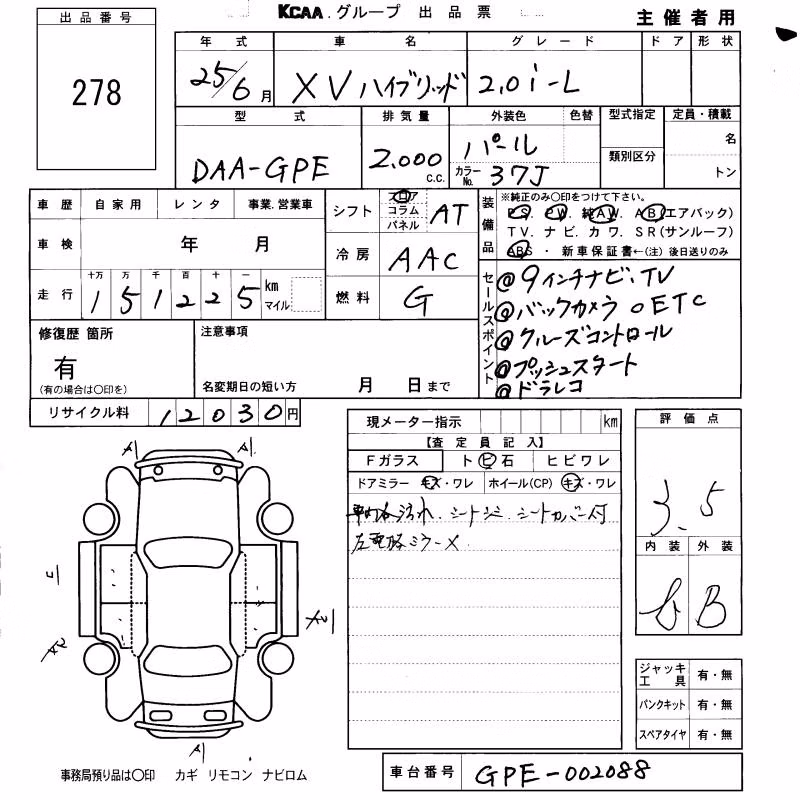 KCAA.グループ 出品票
主催者用
出品番号
278
年式 車名 グレード ドア 形状
25/6月 XVハイブリッド 2.0i-L
型式 排気量 外装色 色替 型式指定 定員・積載
DAA-GPE 2.000 c.c. パール 名
カラーNo. 37J 類別区分 トン
車歴 自家用 レンタ 事業.営業車
車検 年 月
走行 十万 万 千 百 十 一
1 5 1 2 2 5 km マイル
シフト フロア コラム パネル AT
冷房 AAC
燃料 G
装備品
※純正のみ〇印をつけて下さい。
PS. PW. 純AW. AB(エアバック)
TV. ナビ. カワ. SR(サンルーフ)
ABS ・ 新車保証書←(注) 後日送りのみ
セールスポイント
@9インチナビ、TV
@バックカメラ oETC
@クルーズコントロール
@プッシュスタート
@ドラレコ
修復歴 箇所
有
(有の場合は〇印を)
注意事項
名変期日の短い方 月 日まで
リサイクル料 12030円
現メーター指示 km
【査定員記入】
Fガラス トビ石 ヒビワレ
ドアミラー キズ・ワレ ホイール(CP) キズ・ワレ
シートシミ、シートカバー付
ミラーX
評価点
3.5
内装 外装
B
ジャッキ工具 有・無
パンクキット 有・無
スペアタイヤ 有・無
A A
A
事務局預り品は〇印 カギ リモコン ナビロム
車台番号 GPE-002088